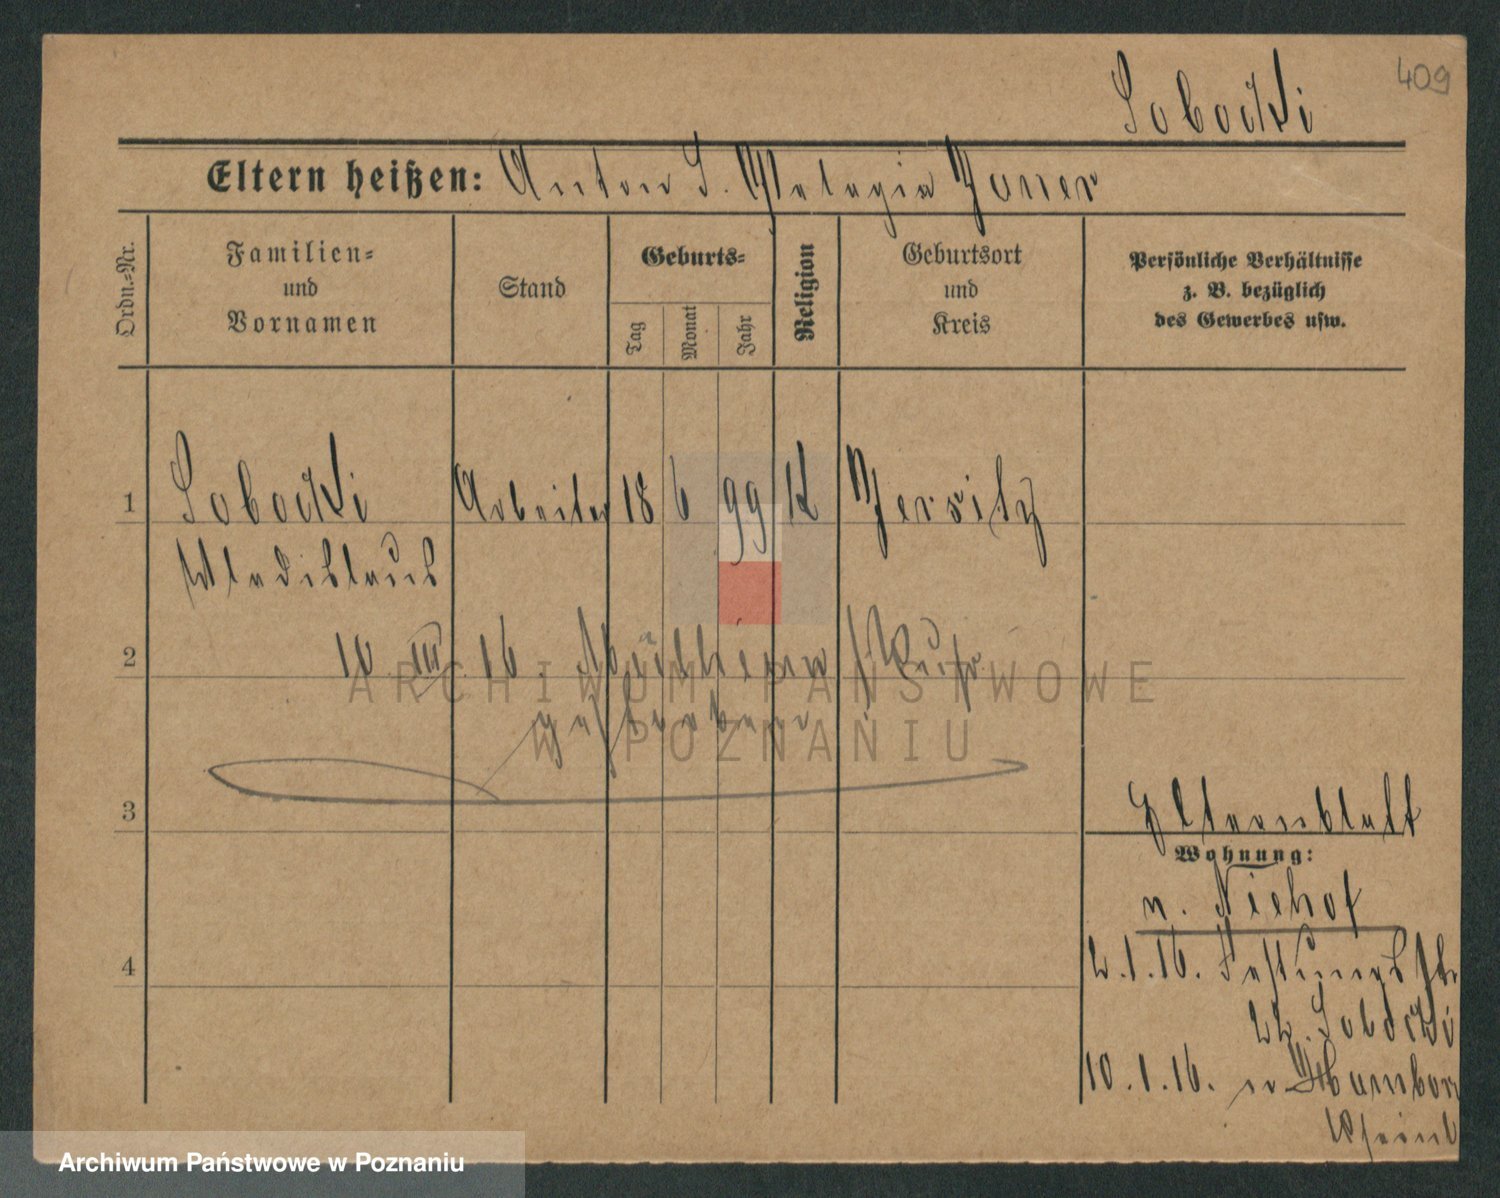 409
Sobocki
Eltern heißen: Anton S. Pelagia Joner
Ordn.-Nr.
Familien- und Vornamen
Stand
Geburts-
Tag
Monat
Jahr
Religion
Geburtsort und Kreis
Persönliche Verhältnisse z. B. bezüglich des Gewerbes usw.
1 Sobocki Arbeiter 18 6 99 K Jersitz
Wladislaus
2 10 III 16 Mülheim / Ruhr
gestorben
3
Elternblatt
Wohnung:
n. Niehof
4
2.1.16. Festungs
22. Sobocki
10.1.16. n Hambor
Rheinl
ARCHIWUM PAŃSTWOWE
W POZNANIU
Archiwum Państwowe w Poznaniu